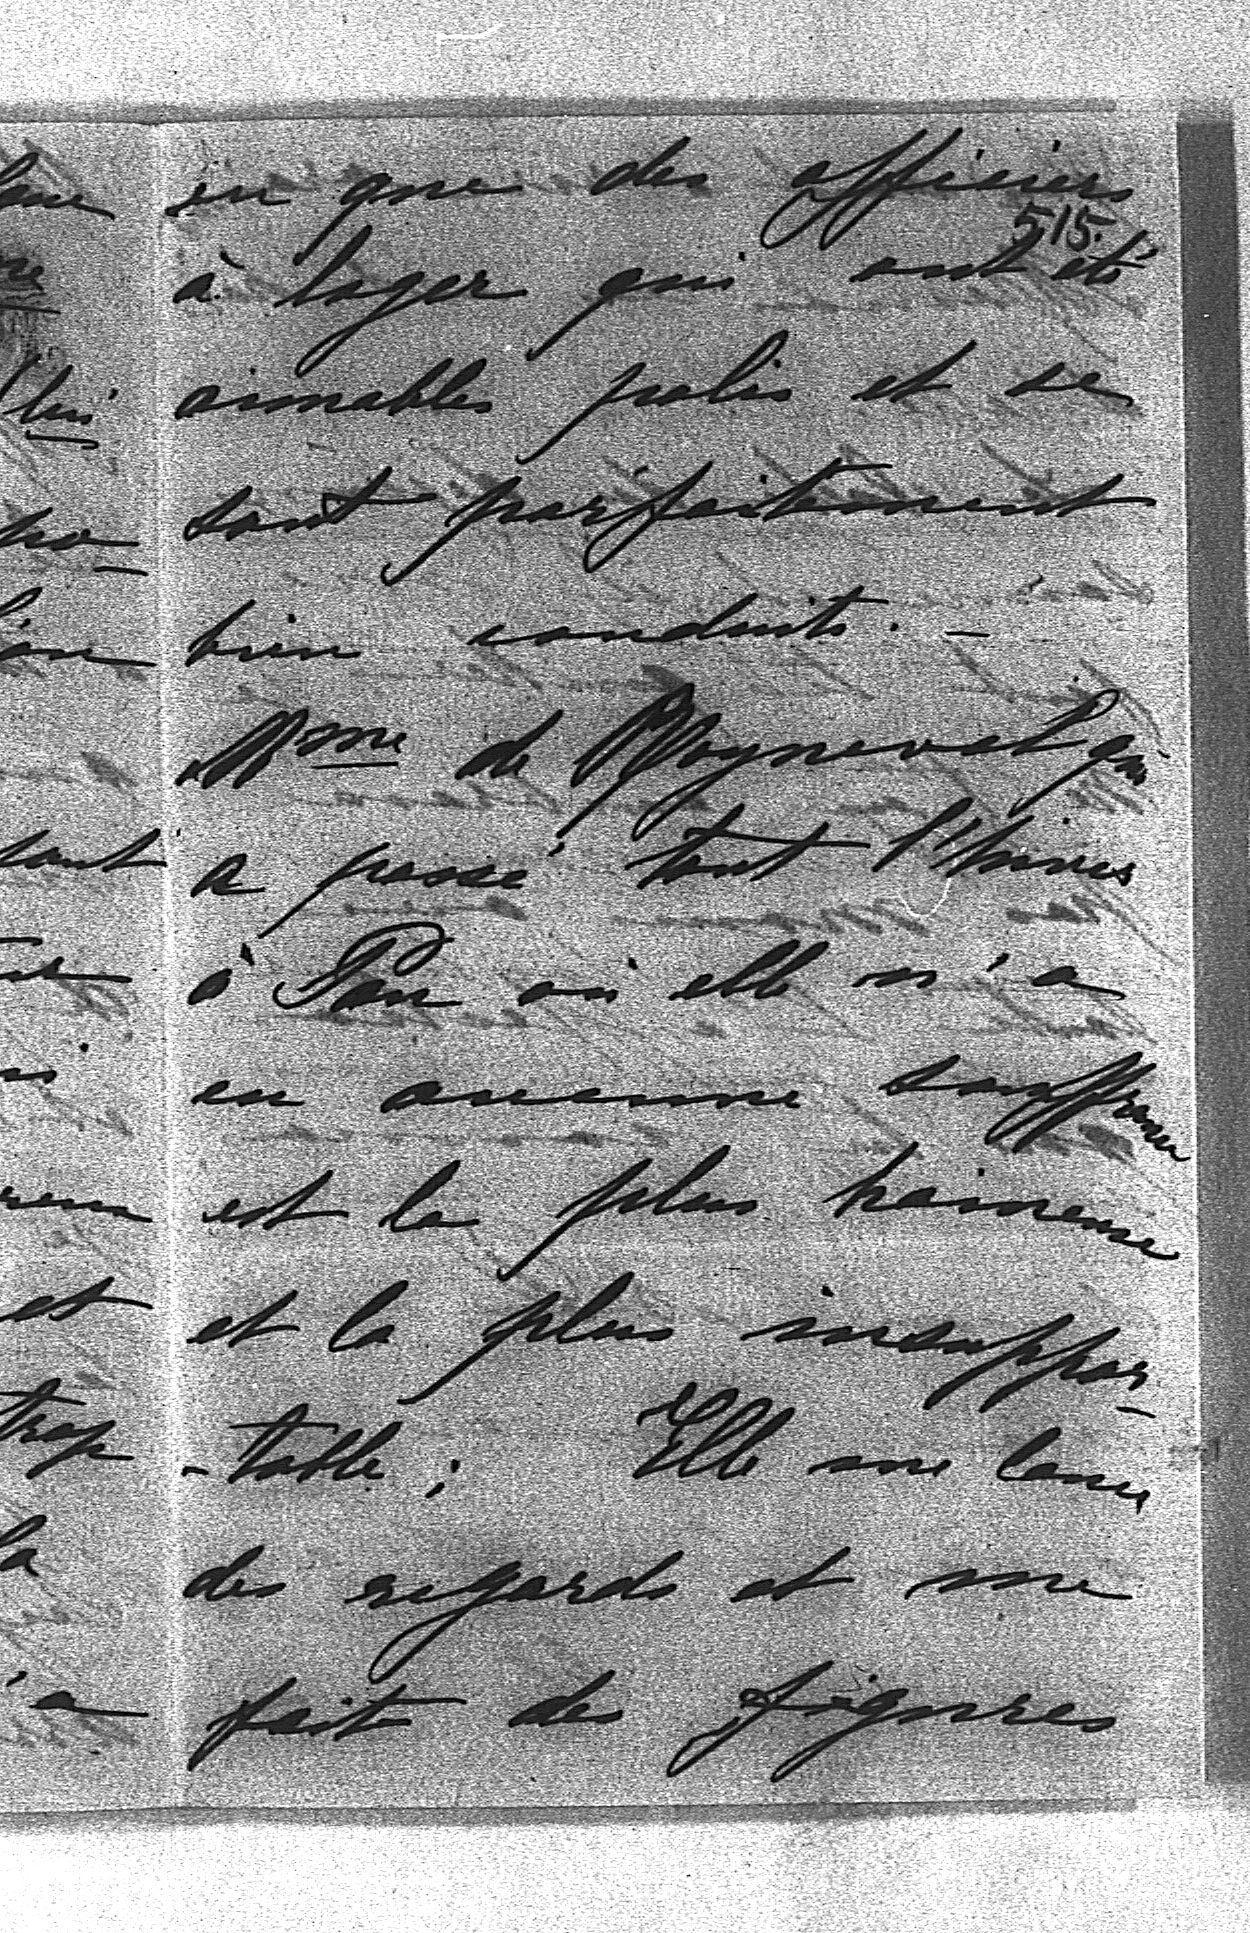 eu que des officiers
515.
à loger qui ont été
aimables polis et se
sont parfaitement
bien conduits. —
Mme de Rayneval qui
a passé tout l'hiver
à Pau où elle n'a
eu aucune souffrance
est la plus haineuse
et la plus insuppor-
-table ; Elle me lance
des regards et me
fait des figures